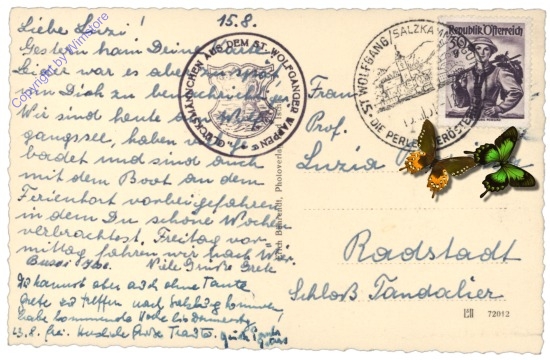 Liebe Luzi! 15.8.
Gestern kam Deine Karte.
Leider war es aber zu spät
um Dich zu benachrichtigen
Wir sind heute am Wolf-
gangsee, haben
badet und sind auch
mit dem Boot an dem
Ferienort vorbeigefahren
in dem Du schöne Wochen
verbrachtest. Freitag vor-
mittag fahren wir nach Wien
Bussi Viele Grüße Grete
Du kannst aber auch ohne Tante
Grete zu treffen nach Salzburg kommen
habe kommende Woche bis Donnerstag
23.8. frei. Herzliche Grüße
GLÜCKSMÄNNCHEN AUS DEM ST. WOLFGANGER WAPPEN
ST. WOLFGANG/SALZKAMMERGUT
DIE PERLE OBERÖSTERR
Republik Österreich
30
Frau
Prof.
Luzia
Radstadt
Schloß Tandalier
72012
Copyright by WinStore